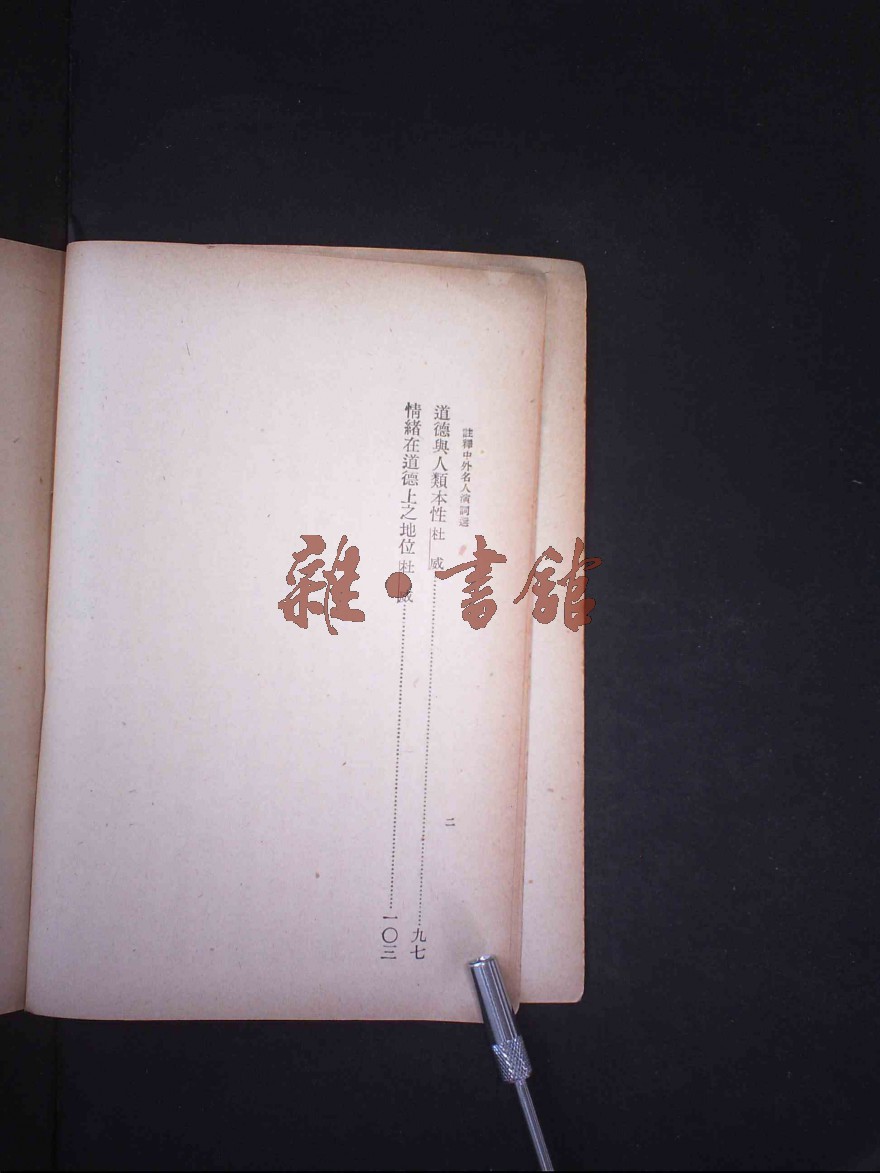 註釋中外名人演詞選
二
道德與人類本性杜威……九七
情緒在道德上之地位杜威……一〇三
雜·書館